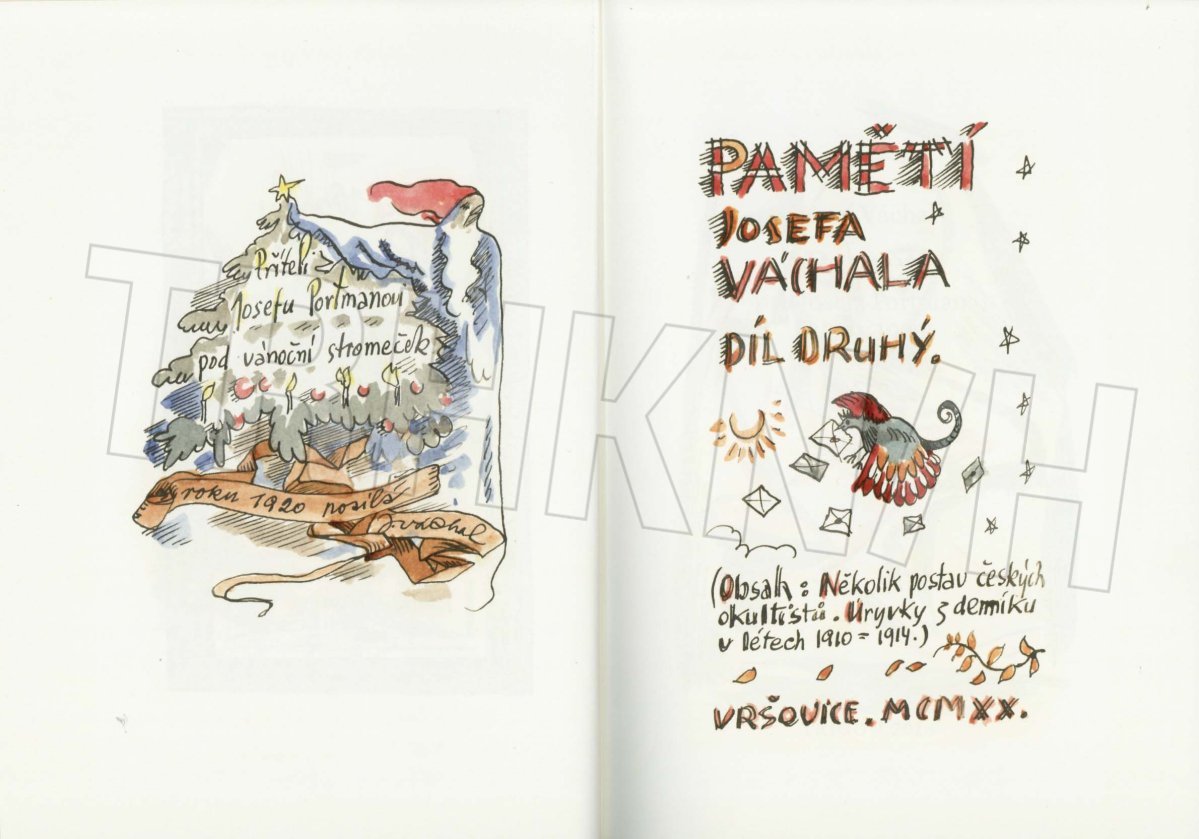 Příteli
Josefu Portmanovi
pod vánoční stromeček
roku 1920 posílá
J. Váchal
PAMĚTÍ
JOSEFA
VÁCHALA
DÍL DRUHÝ.
(Obsah : Několik postav českých
okultistů. Úryvky z denníku
v létech 1910 = 1914.)
VRŠOVICE. MCMXX.
TRHKNIH